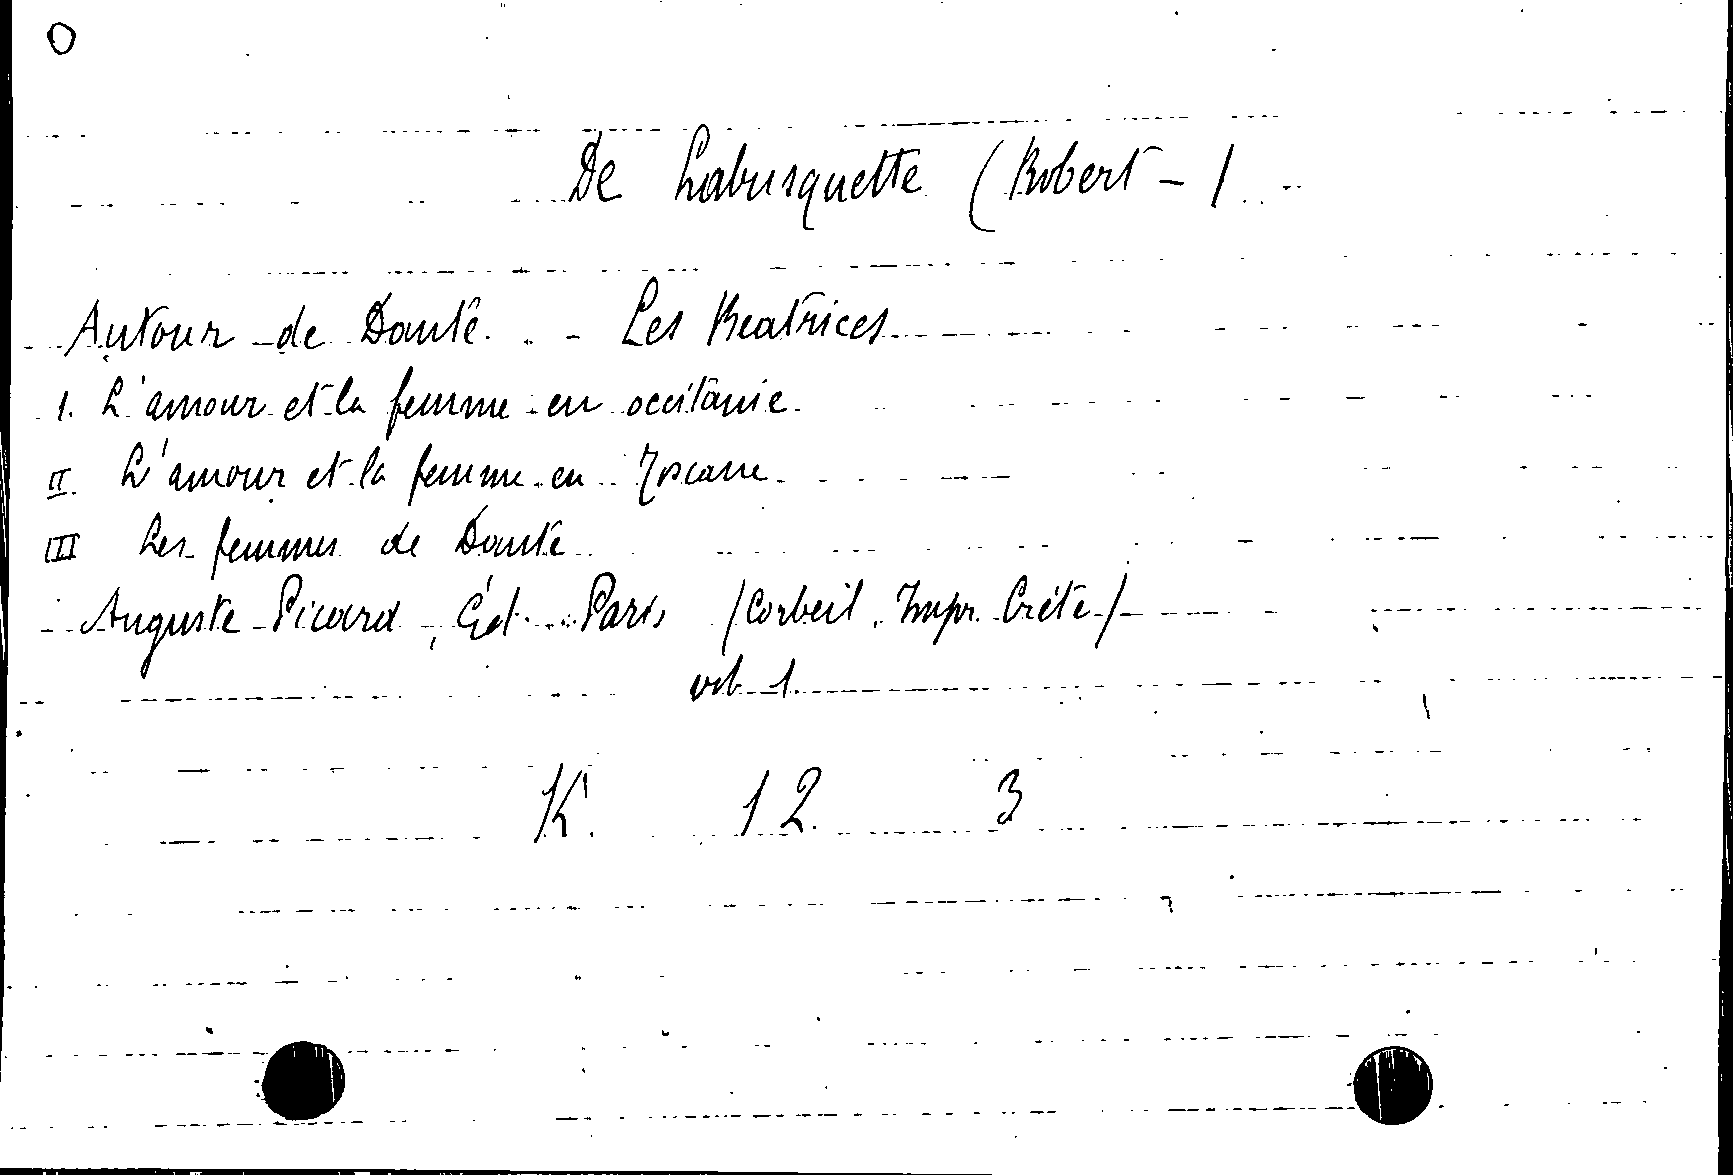 O
De Labusquette (Robert - )
Autour de Dante. - Les Beatrices
I. L'amour et la femme en occitanie.
II. L'amour et la femme en Toscane.
III Les femmes de Dante
Auguste Picard, Éd. Paris (Corbeil. Impr. Crété)
vol 1.
K. 12. 3